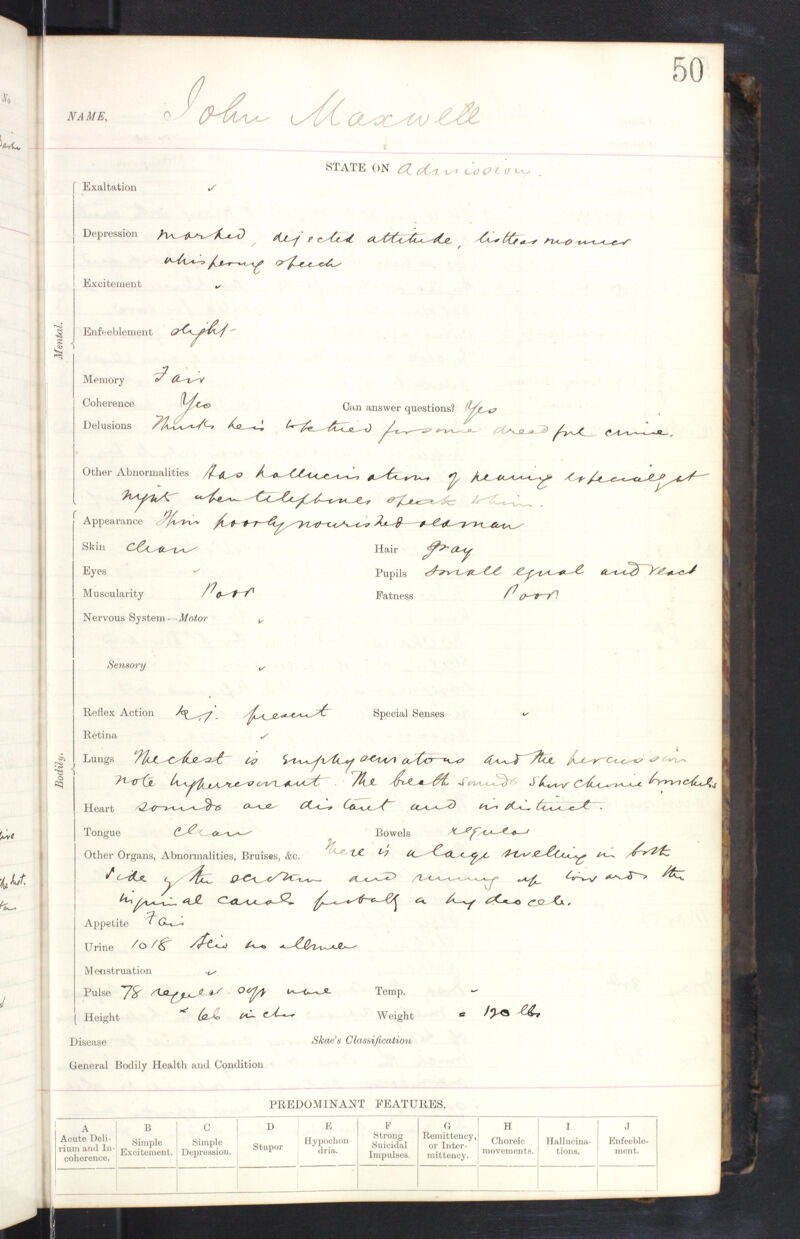 50
NAME, John Maxwell
STATE ON Admission.
Mental.
Exaltation ✓
Depression marked, dejected attitude, listless manner
whispering speech
Excitement ✓
Enfeeblement slight
Memory Fair
Coherence Yes Can answer questions? Yes
Delusions Thinks he is to be tried for some dreadful crime.
Other Abnormalities Has hallucinations of hearing especially at
night when telephones speak to him.
Bodily.
Appearance Thin poorly nourished old man
Skin clean Hair gray
Eyes ✓ Pupils small equal and react
Muscularity Poor Fatness Poor
Nervous System—Motor ✓
Sensory ✓
Reflex Action k.j. present Special Senses ✓
Retina ✓
Lungs The chest is emphysematous and the percussion
note hyperresonant. The breath sounds show chronic bronchitis
Heart sounds are distant and indistinct.
Tongue clean Bowels regular
Other Organs, Abnormalities, Bruises, &c. There is a large swelling in both
side of the scrotum and running up towards the
inguinal canals probably a hydrocele.
Appetite Fair
Urine 1018 Acid no albumen
Menstruation ✓
Pulse 78 regular soft Temp. -
Height 66 inches Weight = 120 lbs
Disease Skae's Classification
General Bodily Health and Condition
PREDOMINANT FEATURES.
A B C D E F G H I J
Acute Delirium and Incoherence. Simple Excitement. Simple Depression. Stupor Hypochondria. Strong Suicidal Impulses. Remittency, or Intermittency. Choreic movements. Hallucinations. Enfeeblement.